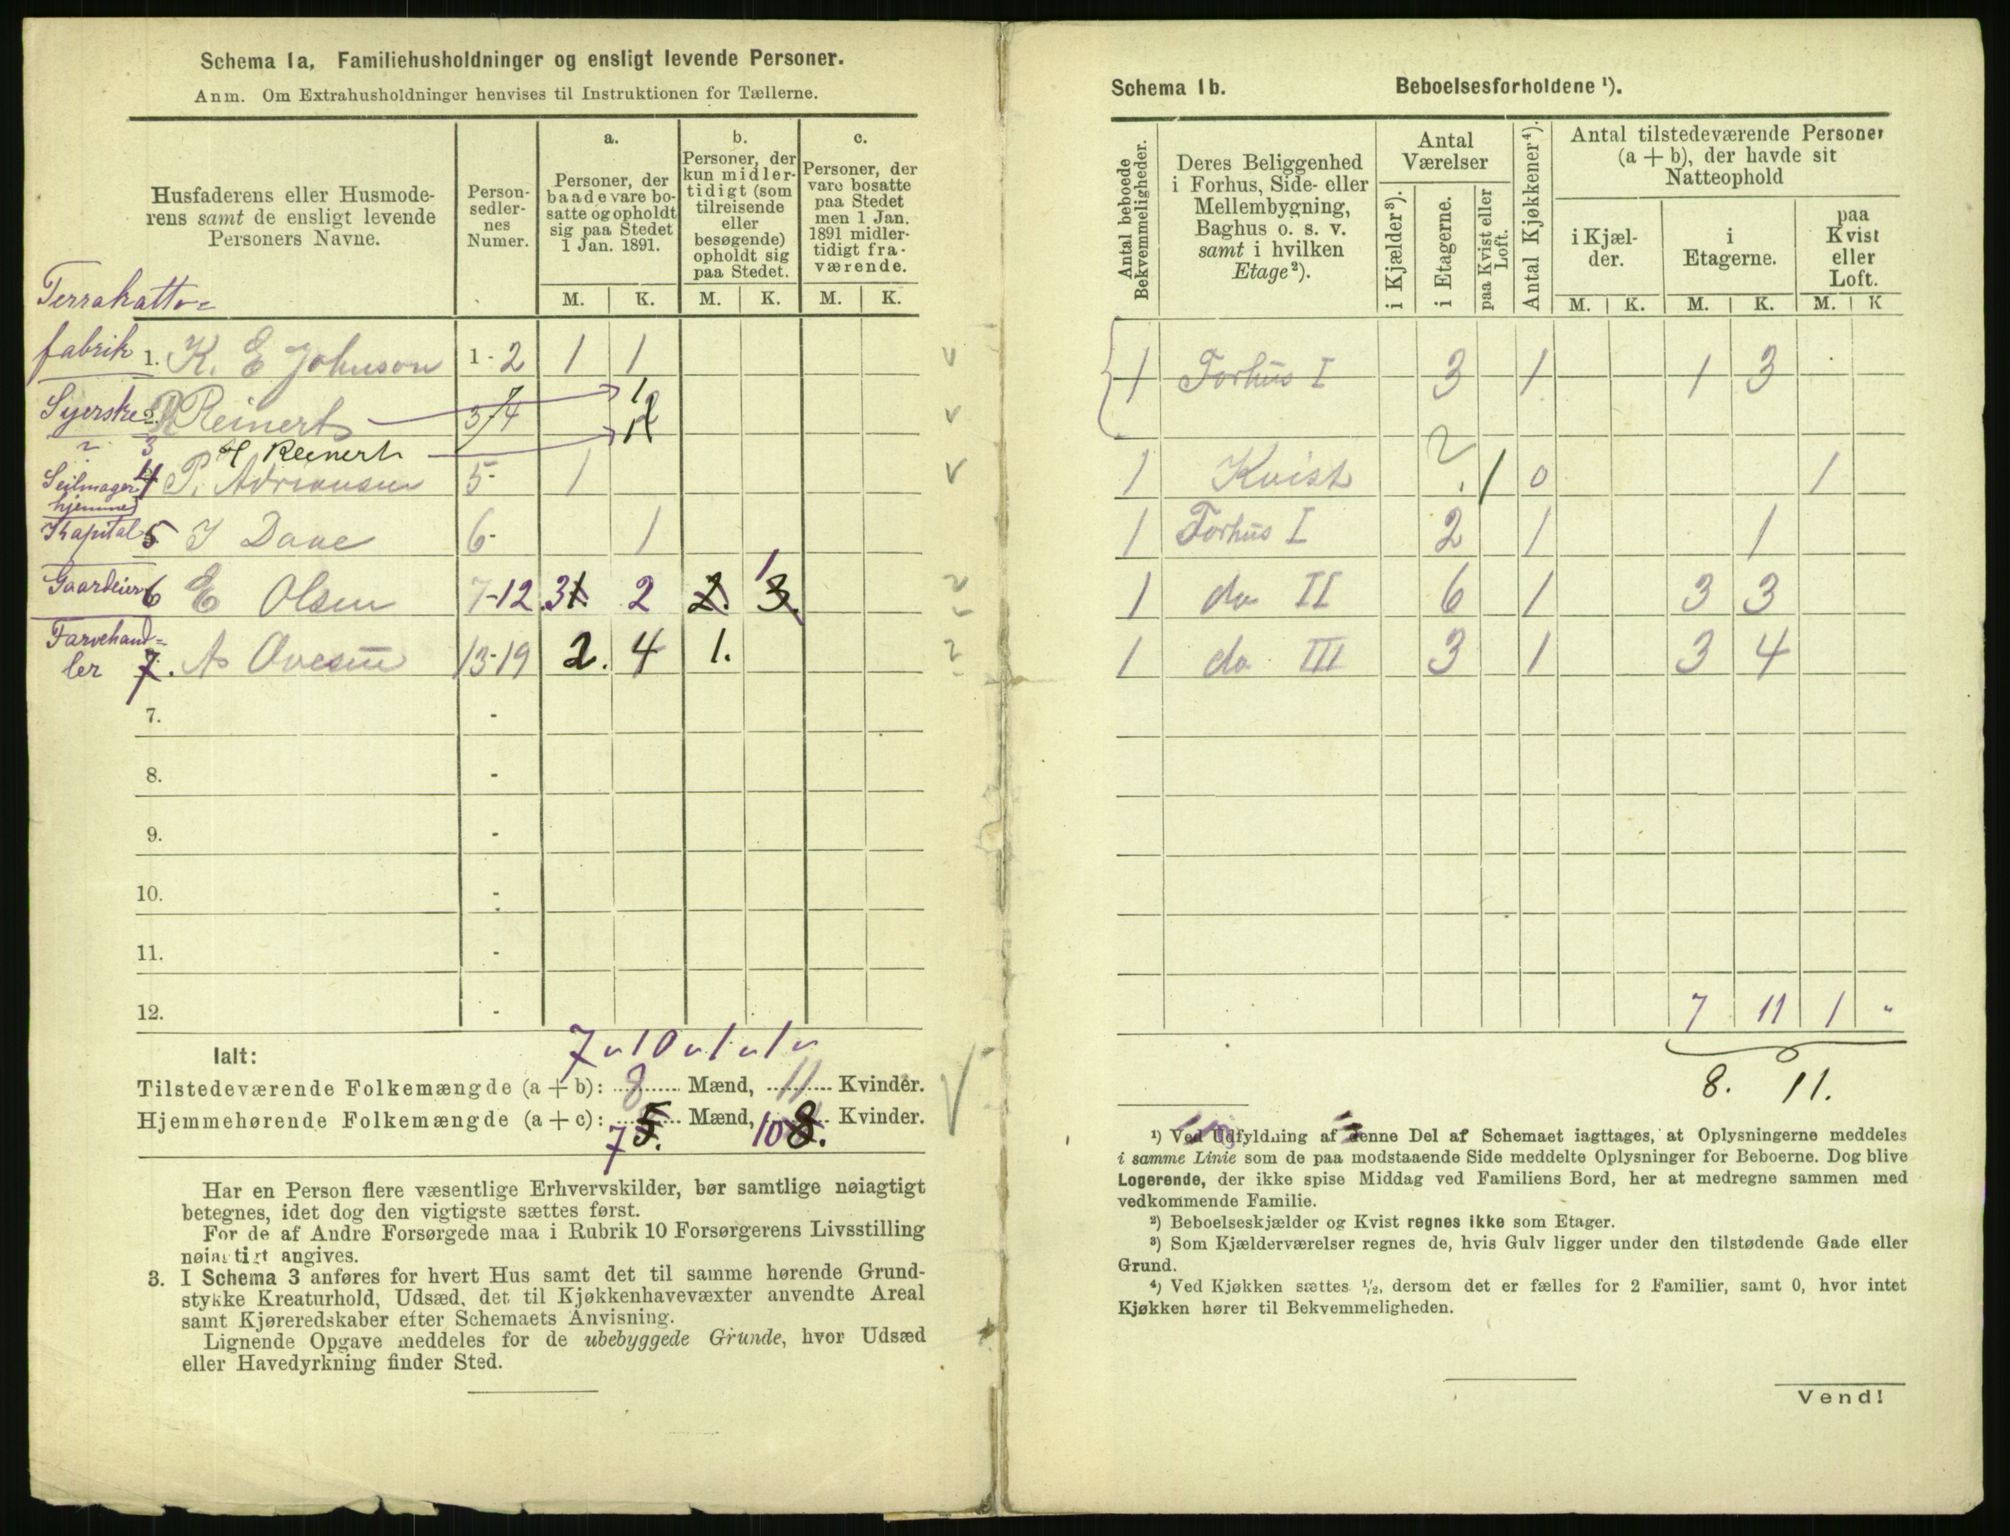 Schema 1a. Familiehusholdninger og ensligt levende Personer.
Anm. Om Extrahusholdninger henvises til Instruktionen for Tællerne.
Husfaderens eller Husmoderens samt de ensligt levende Personers Navne.
Personsedlernes Numer.
a. Personer, der baade vare bosatte og opholdt sig paa Stedet 1 Jan. 1891.
b. Personer, der kun midlertidigt (som tilreisende eller besøgende) opholdt sig paa Stedet.
c. Personer, der vare bosatte paa Stedet men 1 Jan. 1891 midlertidigt fraværende.
M. K. M. K. M. K.
Terrakatto=
fabrik 1. K. E Johnson 1-2 1 1
Syerske 2 R Reinert 3-4 1
" 3 H Reinert 1
Seilmager hjemme 4 P. Adriansen 5- 1
Kapital 5 I Dane 6- 1
Gaardeier 6 E Olsen 7-12 3 2 1
Farvehand=
ler 7. A Ovesen 13-19 2. 4 1.
7. -
8. -
9. -
10. -
11. -
12. -
7 " 10 " 1 " 1 "
Ialt:
Tilstedeværende Folkemængde (a + b): 8 Mænd, 11 Kvinder.
Hjemmehørende Folkemængde (a + c): 5 Mænd, 8. Kvinder.
7 10
Har en Person flere væsentlige Erhvervskilder, bør samtlige nøiagtigt
betegnes, idet dog den vigtigste sættes først.
For de af Andre Forsørgede maa i Rubrik 10 Forsørgerens Livsstilling
nøiagtigt angives.
3. I Schema 3 anføres for hvert Hus samt det til samme hørende Grund-
stykke Kreaturhold, Udsæd, det til Kjøkkenhavevæxter anvendte Areal
samt Kjøreredskaber efter Schemaets Anvisning.
Lignende Opgave meddeles for de ubebyggede Grunde, hvor Udsæd
eller Havedyrkning finder Sted.
Schema 1b. Beboelsesforholdene ¹).
Antal beboede Bekvemmeligheder.
Deres Beliggenhed i Forhus, Side- eller Mellembygning, Baghus o. s. v. samt i hvilken Etage ²).
Antal Værelser
i Kjælder ³).
i Etagerne.
paa Kvist eller Loft.
Antal Kjøkkener ⁴).
Antal tilstedeværende Personer (a + b), der havde sit Natteophold
i Kjælder.
i Etagerne.
paa Kvist eller Loft.
M. K. M. K. M. K
1 Forhus I 3 1 1 3
1 Kvist 1 0 1
1 Forhus I 2 1 1
1 do II 6 1 3 3
1 do III 3 1 3 4
7 11 1 "
8. 11.
¹) Ved Udfyldning af denne Del af Schemaet iagttages, at Oplysningerne meddeles
i samme Linie som de paa modstaaende Side meddelte Oplysninger for Beboerne. Dog blive
Logerende, der ikke spise Middag ved Familiens Bord, her at medregne sammen med
vedkommende Familie.
²) Beboelseskjælder og Kvist regnes ikke som Etager.
³) Som Kjælderværelser regnes de, hvis Gulv ligger under den tilstødende Gade eller
Grund.
⁴) Ved Kjøkken sættes ½, dersom det er fælles for 2 Familier, samt 0, hvor intet
Kjøkken hører til Bekvemmeligheden.
Vend!